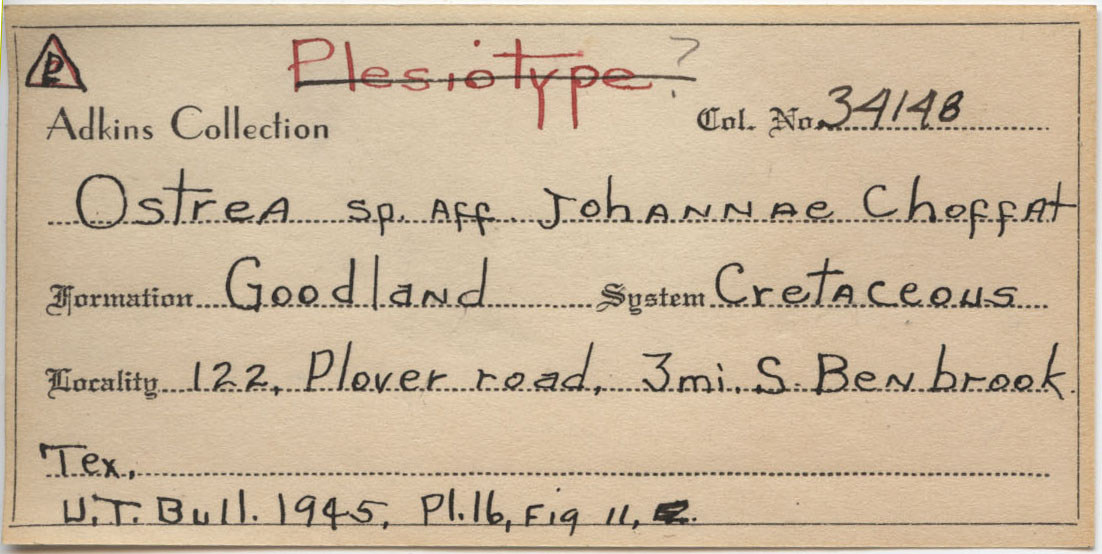 P
Plesiotype ?
Adkins Collection
Col. No. 34148
Ostrea sp. aff. Johannae Choffat
Formation Goodland System Cretaceous
Locality 122, Plover road, 3mi. S. Benbrook.
Tex.,
U.T. Bull. 1945, Pl.16, Fig 11,